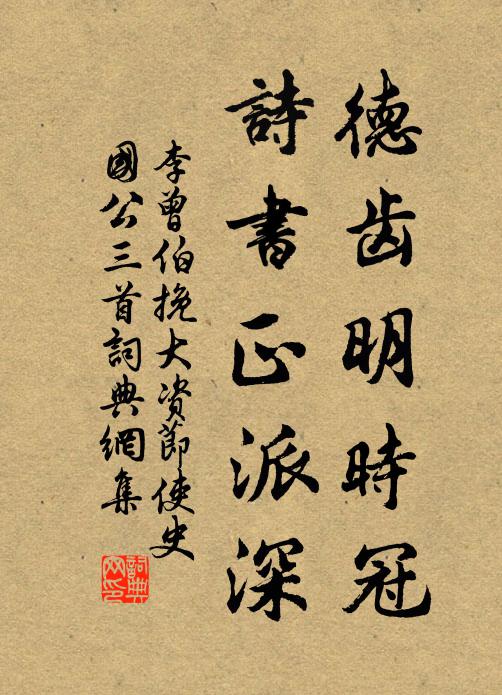 德齿明時冠
詩書正派深
李曾伯挽大资節使史
國公三首詞典網集
詞典
网印